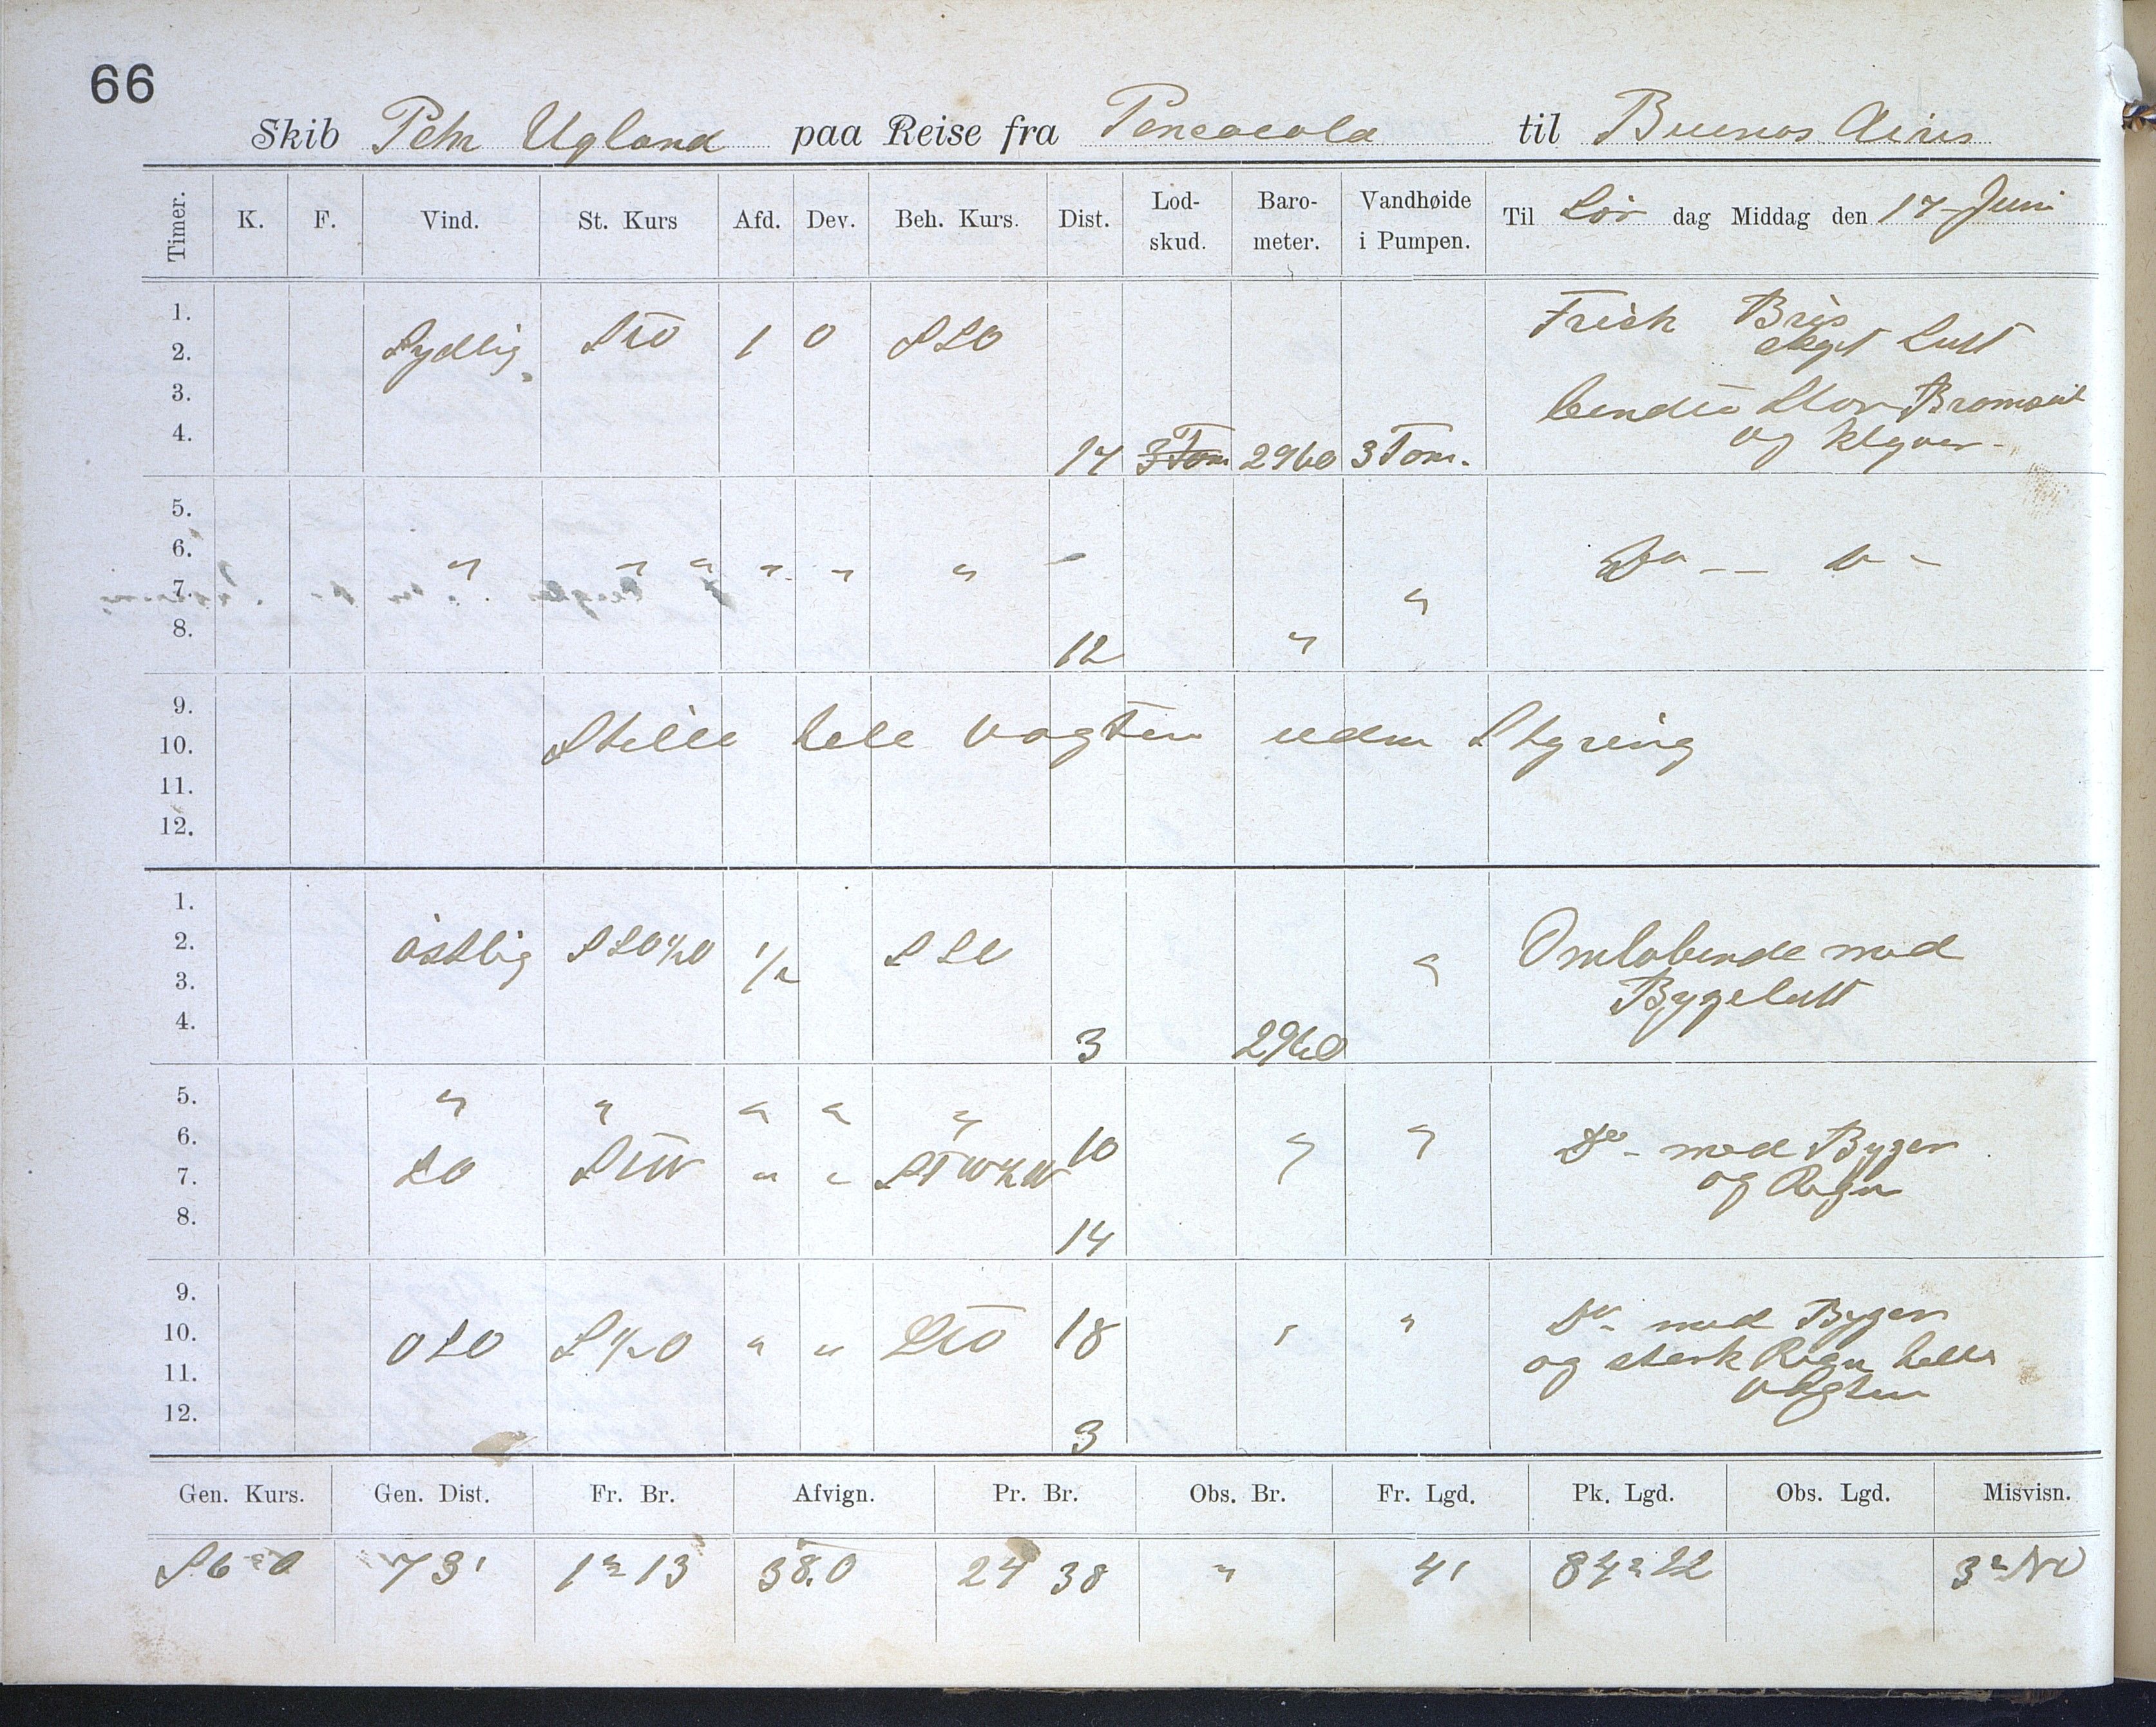 66
Skib Petr Ugland paa Reise fra Pencacola til Buenos Aires
Timer. K. F. Vind. St. Kurs Afd. Dev. Beh. Kurs. Dist. Lod-skud. Baro-meter. Vandhøide i Pumpen. Til Lör dag Middag den 17 Juni
1. Frisk Bris
2. Sydlig StO 1 0 SSO skyet Luft
3. Stor Bramseil
4. 14 3 Tom 2960 3 Tom. og Klyver
5.
6. " " " " " " Do — — o -
7. "
8. 12 "
9.
10. Stille hele Vagten uden Styring
11.
12.
1.
2. östlig SSO½O ½ SSO " Omlobende med
3. Bygeluft
4. 3 2960
5. " " " " "
6. 10 " " Do - med Byger
7. SO StW " " StW½W og Regn
8. 14
9.
10. OSO S½O " " StO 18 " " Do - med Byger
11. og sterk Regn hele
12. 3 Vagten
Gen. Kurs. Gen. Dist. Fr. Br. Afvign. Pr. Br. Obs. Br. Fr. Lgd. Pk. Lgd. Obs. Lgd. Misvisn.
S 6° O 73' 1° 13 38.0 24 38 " 41 84° 22 3° NO